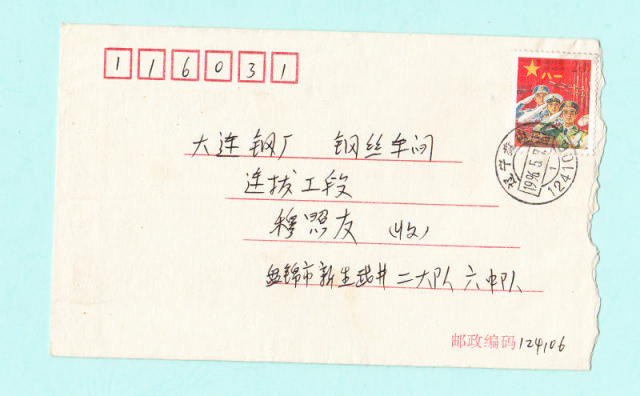 116031
八一
大连钢厂 钢丝车间
连拔工段
穆照友 (收)
盘锦市新生武井二大队六中队
邮政编码124106
辽宁
1996.5.
12410